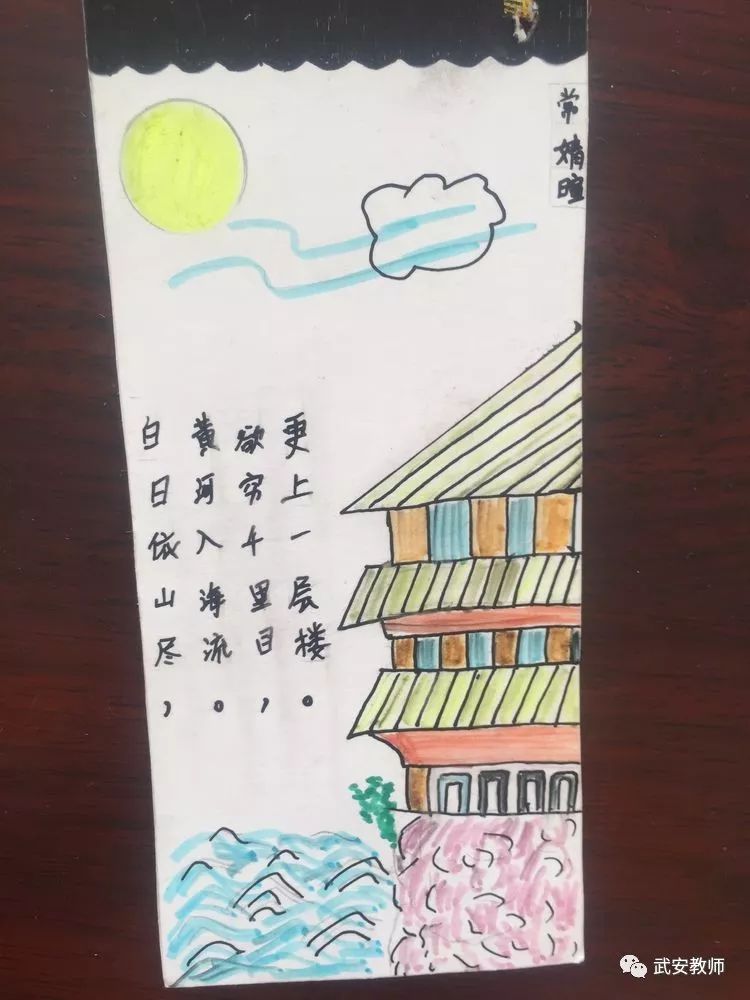 常婧暄
白日依山尽，
黄河入海流。
欲穷千里目，
更上一层楼。
武安教师